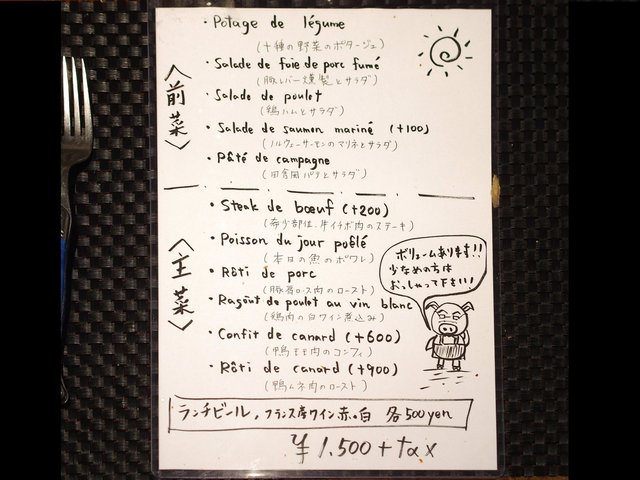 〈前菜〉
・Potage de légume
(十種の野菜のポタージュ)
・Salade de foie de porc fumé
(豚レバー燻製とサラダ)
・Salade de poulet
(鶏ハムとサラダ)
・Salade de saumon mariné (+100)
(ノルウェーサーモンのマリネとサラダ)
・Pâté de campagne
(田舎風パテとサラダ)
〈主菜〉
・Steak de bœuf (+200)
(希少部位、牛イチボ肉のステーキ)
・Poisson du jour poêlé
(本日の魚のポワレ)
・Rôti de porc
(豚肩ロース肉のロースト)
・Ragoût de poulet au vin blanc
(鶏肉の白ワイン煮込み)
・Confit de canard (+600)
(鴨モモ肉のコンフィ)
・Rôti de canard (+900)
(鴨ムネ肉のロースト)
ボリュームあります!!
少なめの方は
おっしゃって下さい!
ランチビール、フランス産ワイン赤。白 各500yen
¥1,500+tax